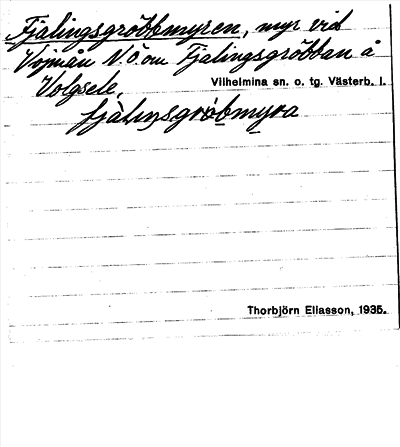 Fjälingsgröbbmyren, myr vid
Vojmån N.Ö. om Fjälingsgröbban å
Volgsele.
Vilhelmina sn. o. tg. Västerb. l.
fjä̀liŋsgröbmyra
Thorbjörn Eliasson, 1935.